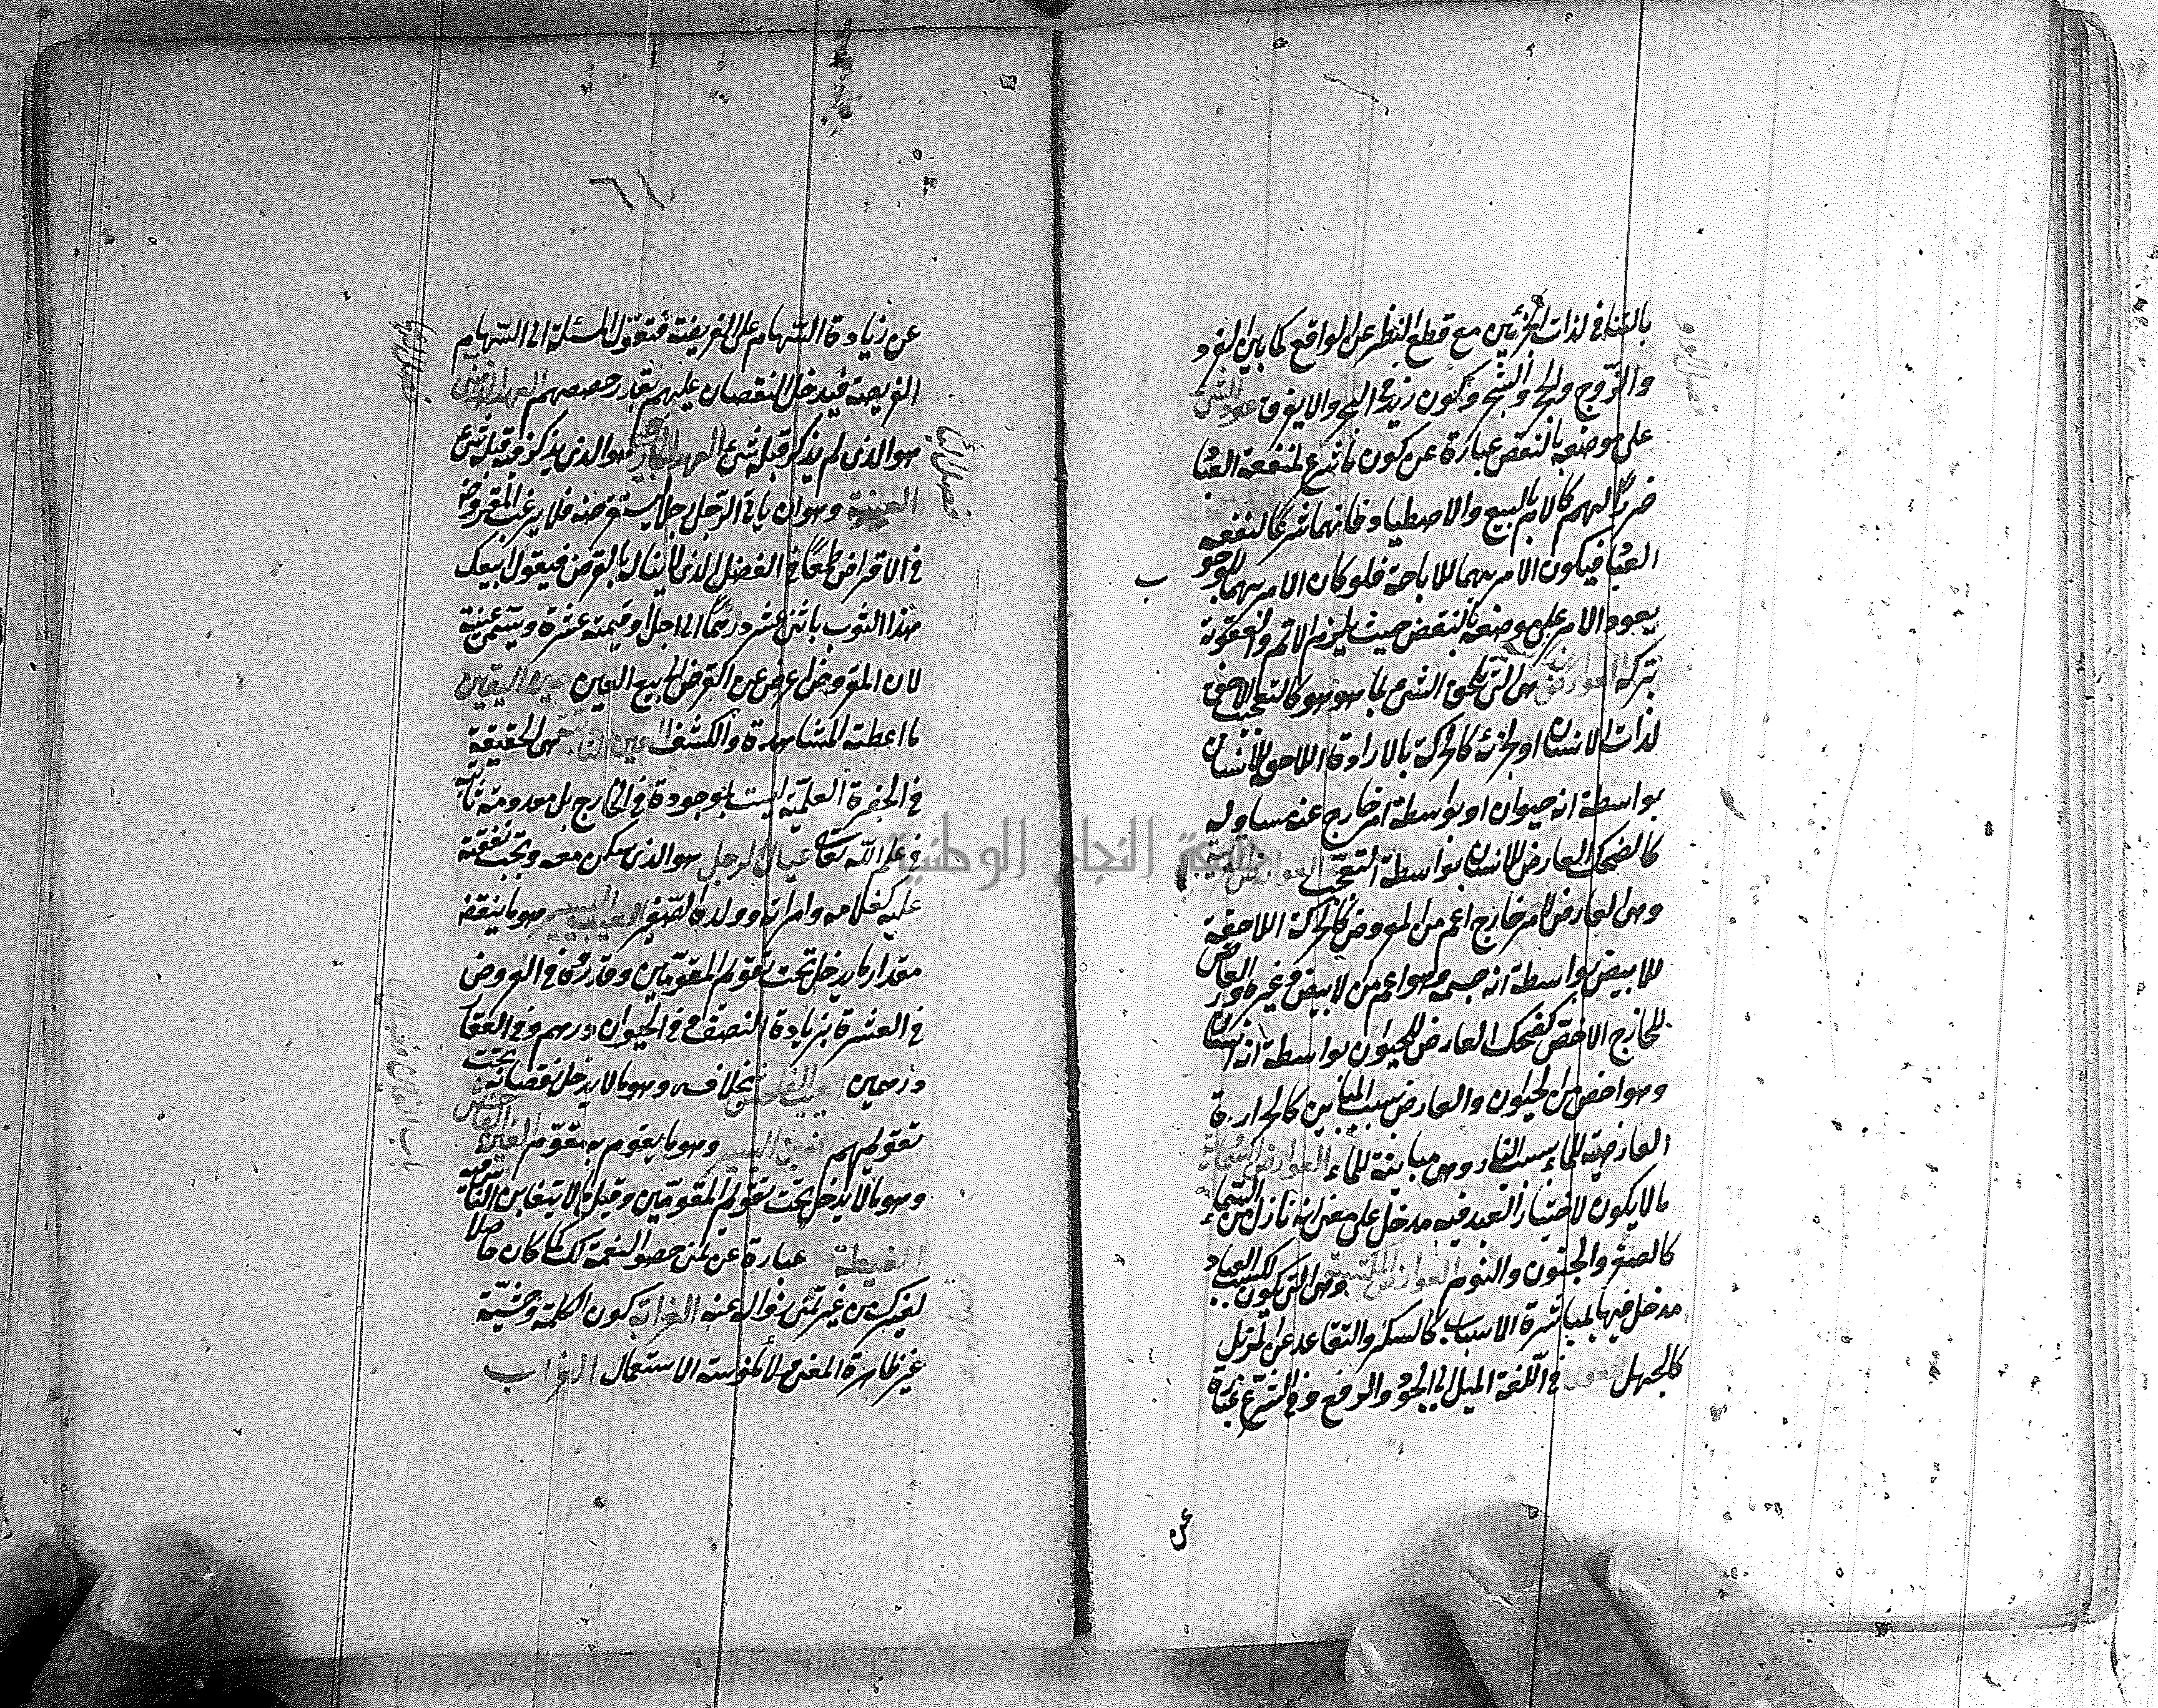 بالتنافي لذات الجزئين مع قطع النظر عن الواقع كما بين الفرد
والزوج والحجر والشجر وكون زيد في البحر والا يغرق عود الشئ
على موضوعه بالنقض عبارة عن كون ما شرع لمنفعة العبا
ضررا لهم كالامر بالبيع والاصطياد فانهما شرعا لمنفعة
العبا فيكون الامر بهما للاباحة فلو كان الامر بهما للوجو
ب
يعود الامر على موضوعه بالنقض حيث يلزم الاثم والعقوبة
بتركه العوارض هي التي تلحق الشئ لما هو هو كالتعجب اللاحق
لذات الانسان او لجزئه كالحركة بالارادة اللاحق للانسان
بواسطة انه حيوان او بواسطة امر خارج عنه مساو له
كالضحك العارض للانسان بواسطة التعجب العوارض
وهي العارض لامر خارج اعم من المعروض كالحركة اللاحقة
للابيض بواسطة انه جسم وهو اعم من الابيض وغيره والعارض
للخارج الاخص كضحك العارض للحيوان بواسطة انه انسان
وهو اخص من الحيوان والعارض بسبب المباين كالحرارة
العارضية للماء بسبب النار وهي مباينة للماء العوارض السماوية
ما لا يكون لاختيار العبد فيه مدخل على معنى انه نازل من السماء
كالصغر والجنون والنوم العوارض المكتسبة وهي التي يكون لكسب العباد
مدخل فيها بمباشرة الاسباب كالسكر والتقاعد عن المزيل
كالجهل العول في اللغة الميل الى الجور والرفع وفي الشرع عبارة
عن
٦٧
عن زيادة السهام على الفريضة فتعول المسئلة الى السهام
الفريضة فيدخل النقصان عليهم بقدر حصصهم العهد الذهني
هو الذي لم يذكر قبله شئ العهد الخارجي هو الذي يذكر فيه قبله شئ
العينة وهو ان ياتي الرجل رجلا يستقرضه فلا يرغب المقرض
في الاقراض طمعا في الفضل الذي لا ينال بالقرض فيقول ابيعك
هذا الثوب باثنى عشر درهما الى اجل وقيمته عشرة ويسمى عينة
لان المقرض اعرض عن القرض الى بيع العين عين اليقين
ما اعطته المشاهدة والكشف العين الثابتة هي الحقيقة
في الحضرة العلمية ليست بموجودة في الخارج بل معدومة ثابتة
في علم الله تعالى عيال الرجل هو الذي يسكن معه وتجب نفقته
عليه كغلامه وامراته وولده الصغير العيب اليسير هو ما ينقص
مقدار ما يدخل تحت تقويم المقومين وقدره في العروض
في العشرة بزيادة النصف وفي الحيوان درهم وفي العقار
درهمين العيب الفاحش بخلافه وهو ما لا يدخل نقصانه تحت
تقويمهم الغبن اليسير وهو ما يقوم به مقوم الغبن الفاحش
وهو ما لا يدخل تحت تقويم المقومين وقيل ما لا يتغابن الناس فيه
الغبطة عبارة عن تمنى حصول النعمة لك كما كان حاصلا
لغيرك من غير تمنى زواله عنه الغرابة كون الكلمة وحشية
غير ظاهرة المعنى ولا مأنوسة الاستعمال الغراب